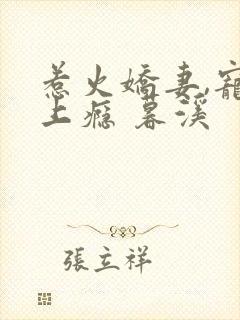 惹火嬌妻,寵
上瘾 暮溪
張立祥